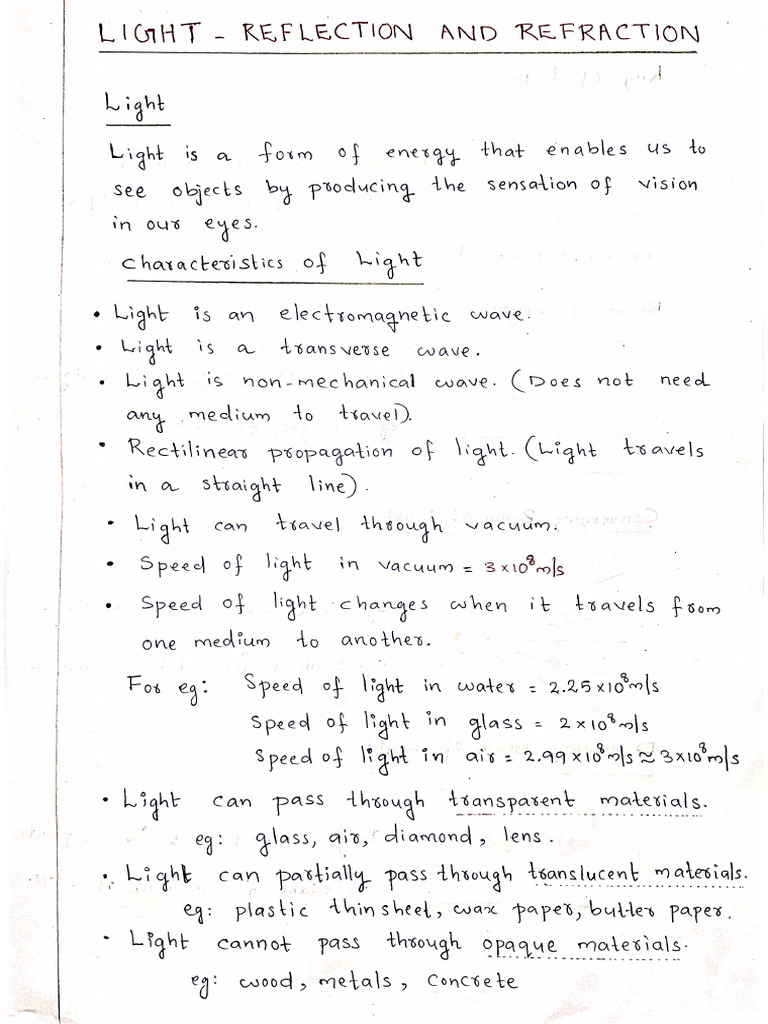 LIGHT - REFLECTION AND REFRACTION
Light
Light is a form of energy that enables us to
see objects by producing the sensation of vision
in our eyes.
Characteristics of Light
• Light is an electromagnetic wave.
• Light is a transverse wave.
• Light is non-mechanical wave. (Does not need
any medium to travel).
• Rectilinear propagation of light. (Light travels
in a straight line).
• Light can travel through vacuum.
• Speed of light in vacuum = 3×10⁸m/s
• Speed of light changes when it travels from
one medium to another.
For eg: Speed of light in water = 2.25×10⁸m/s
Speed of light in glass = 2×10⁸m/s
Speed of light in air = 2.99×10⁸m/s ≈ 3×10⁸m/s
• Light can pass through transparent materials.
eg: glass, air, diamond, lens.
• Light can partially pass through translucent materials.
eg: plastic thin sheet, wax paper, butter paper.
• Light cannot pass through opaque materials.
eg: wood, metals, concrete